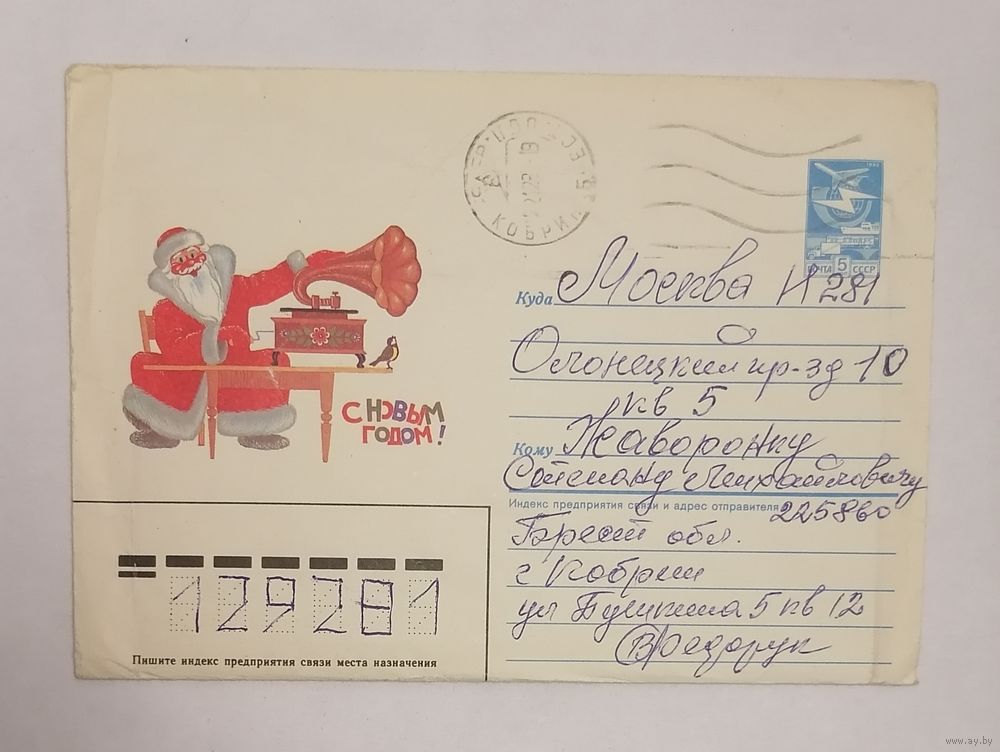 КОБРИН
1982
ПОЧТА 5 СССР
Куда Москва И 281
Олонецкий пр-зд 10
кв 5
Кому Жаворонку
Степану Михайловичу
Индекс предприятия связи и адрес отправителя 225860
Брест обл.
г Кобрин
ул Пушкина 5 кв 12
Федорук
С НОВЫМ
ГОДОМ!
129281
Пишите индекс предприятия связи места назначения
www.ay.by